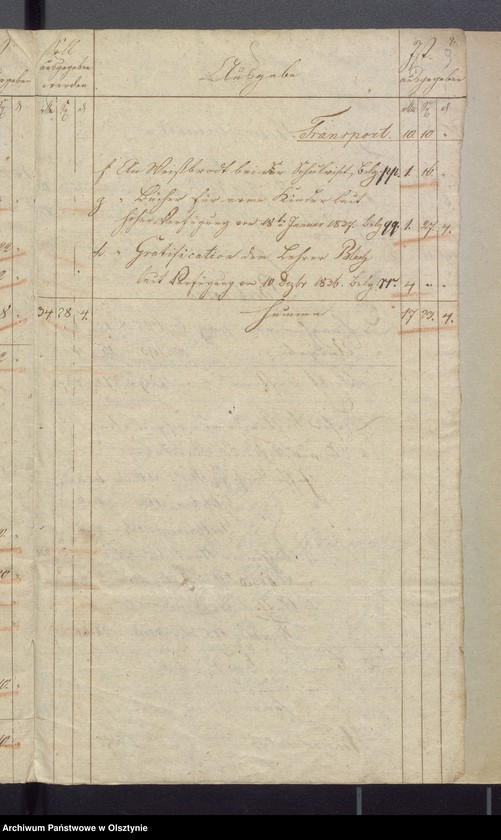 Soll
ausgegeben
werden
Ausgabe
Ist
ausgegeben
Transport. 10 10 -
f An Weißbrodt bei der Schulvisit. Belg. pp. 1. 16 -
g " Bücher für arme Kinder laut
hoher Verfügung vom 18ten Januar 1837. Belg qq. 1. 27. 4.
h " Gratification dem Lehrer
laut Verfügung v. 10 Dezbr 1836. Belg rr. 4 - -
34 28. 4. Summa 17 23. 4.
Archiwum Państwowe w Olsztynie